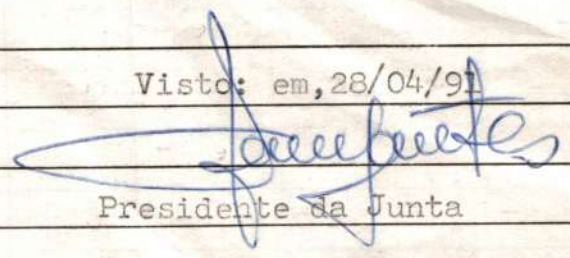 Visto: em,28/04/91
Presidente da Junta